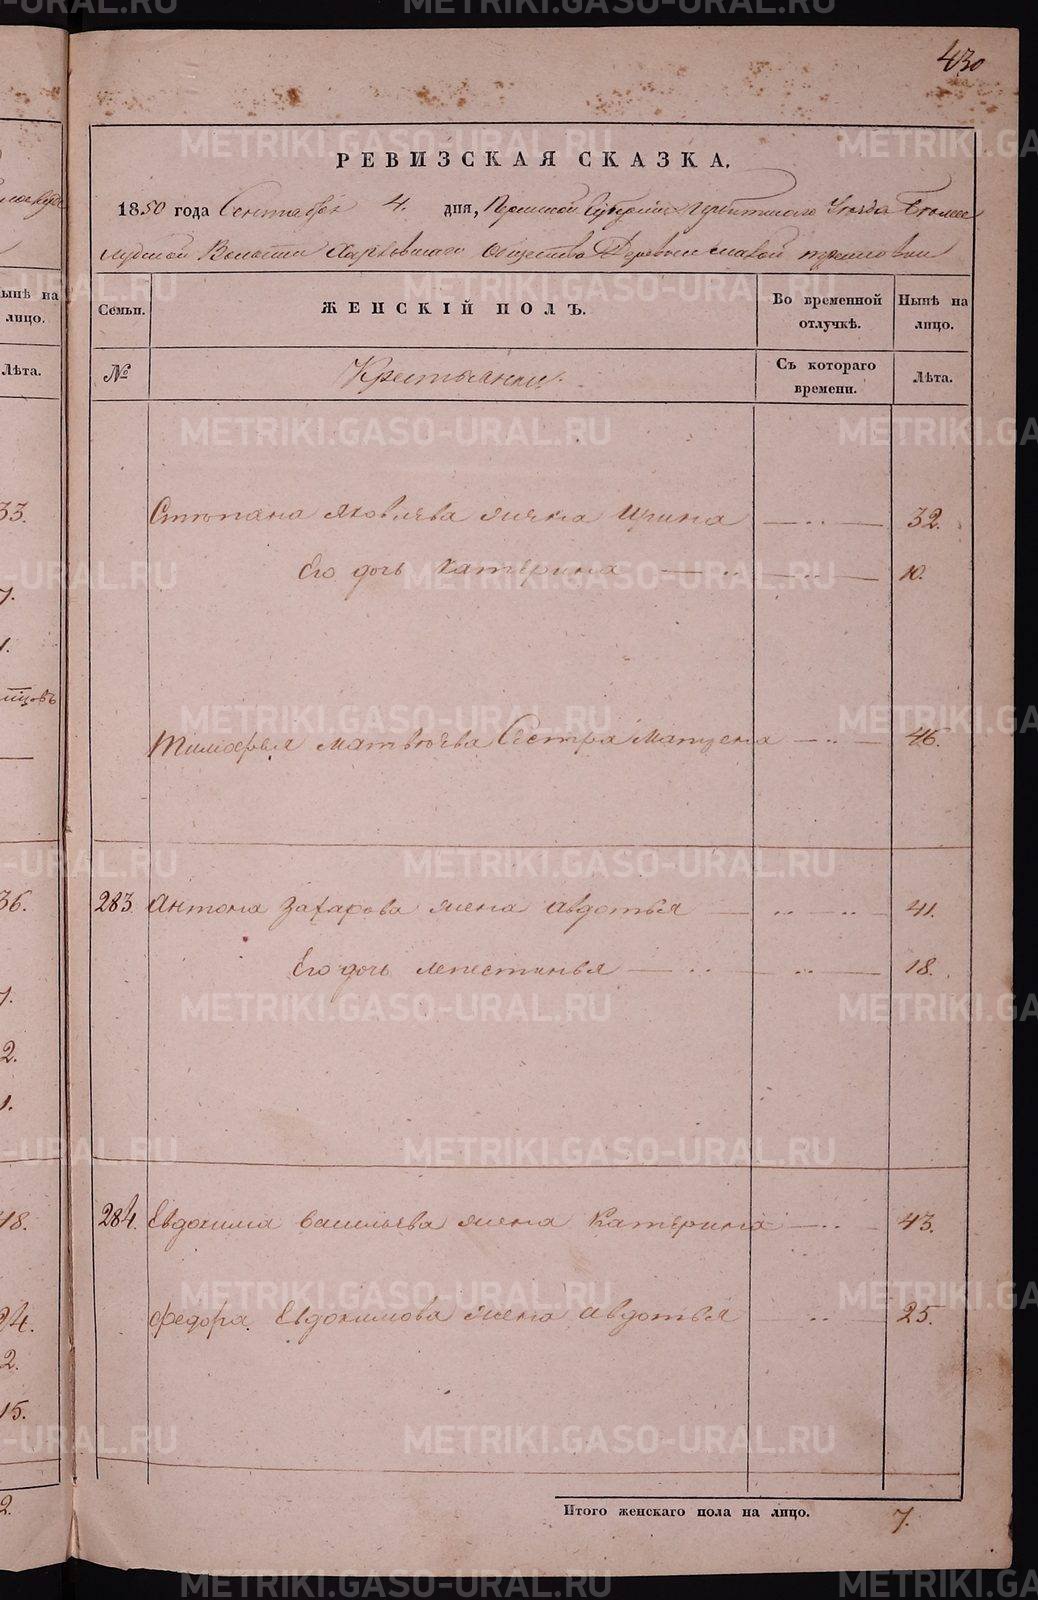 METRIKI.GASO-URAL.RU
430
РЕВИЗСКАЯ СКАЗКА.
1850 года Сентября 4. дня, Пермской Губернии Ирбитского Уезда
Волости Харловскаго Общества Деревни
Семьи.
ЖЕНСКІЙ ПОЛЪ.
Во временной отлучкѣ.
Нынѣ на лицо.
№
Крестьянки.
Съ котораго времени.
Лѣта.
Степана Яковлева жена Ирина — 32.
Его дочь Катерина — 10.
Тимофея Матвѣева Сестра — 46.
283. Антона Захарова жена Авдотья — 41.
Его дочь Лепестинья — 18.
284. Евдокима Васильева жена Катерина — 43.
Федора Евдокимова жена Авдотья — 25.
Итого женскаго пола на лицо. 7.
ынѣ на
лицо.
Лѣта.
33.
7.
1.
36.
7.
2.
1.
48.
24.
2.
15.
2.